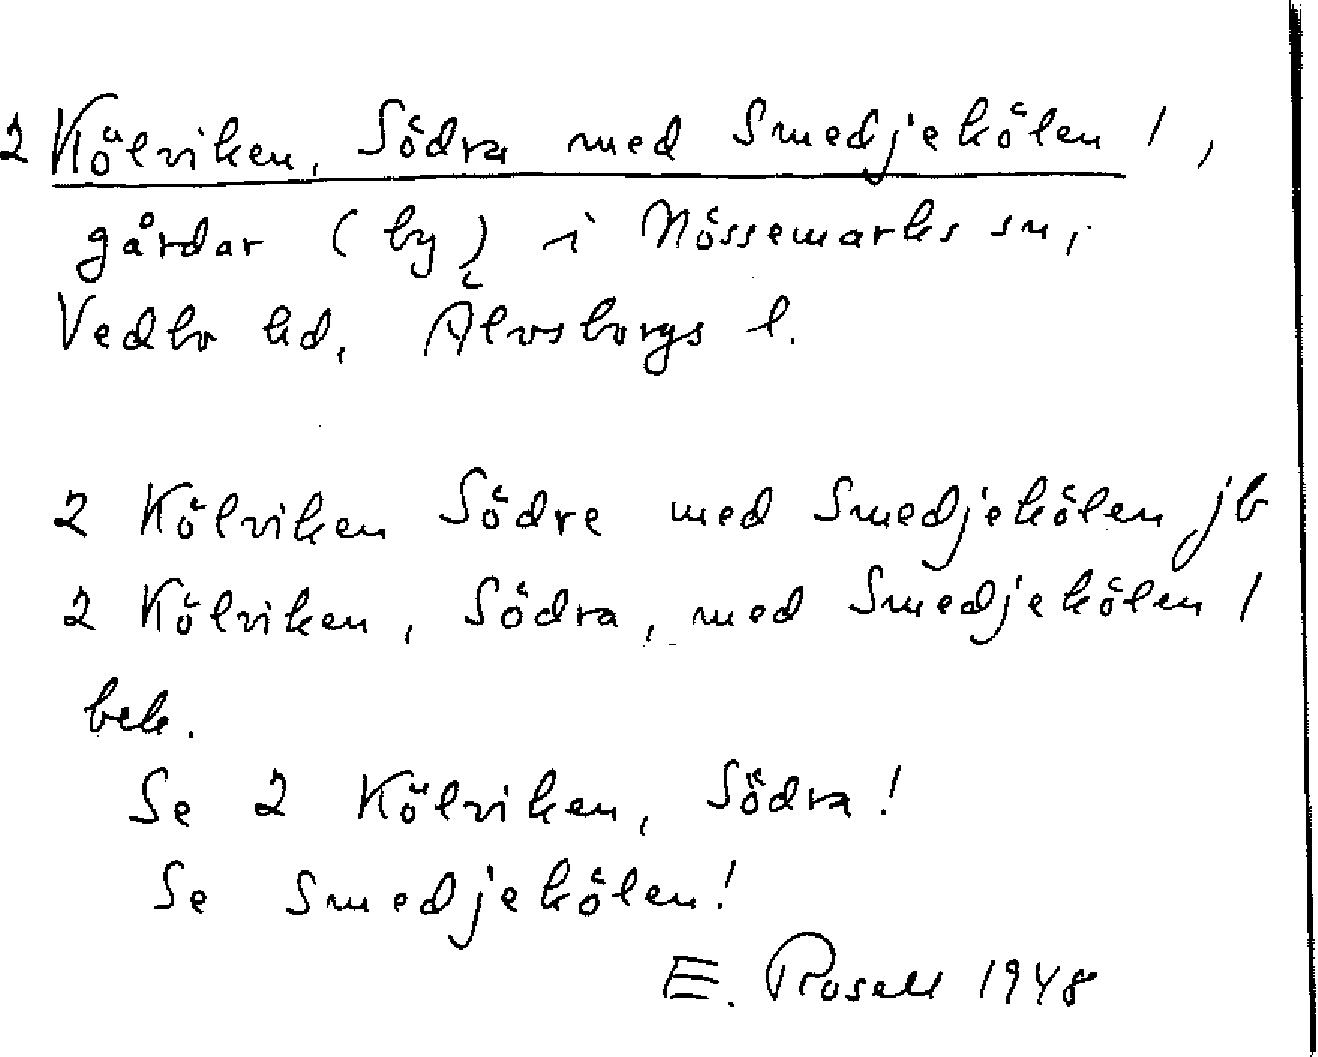 2 Kölviken, Södra med Smedjekölen 1,
gårdar (by) i Nössemarks sn,
Vedbo hd, Älvsborgs l.
2 Kölviken Södre med Smedjekölen jb
2 Kölviken, Södra, med Smedjekölen 1
bek.
Se 2 Kölviken, Södra!
Se Smedjekölen!
E. Rosell 1948